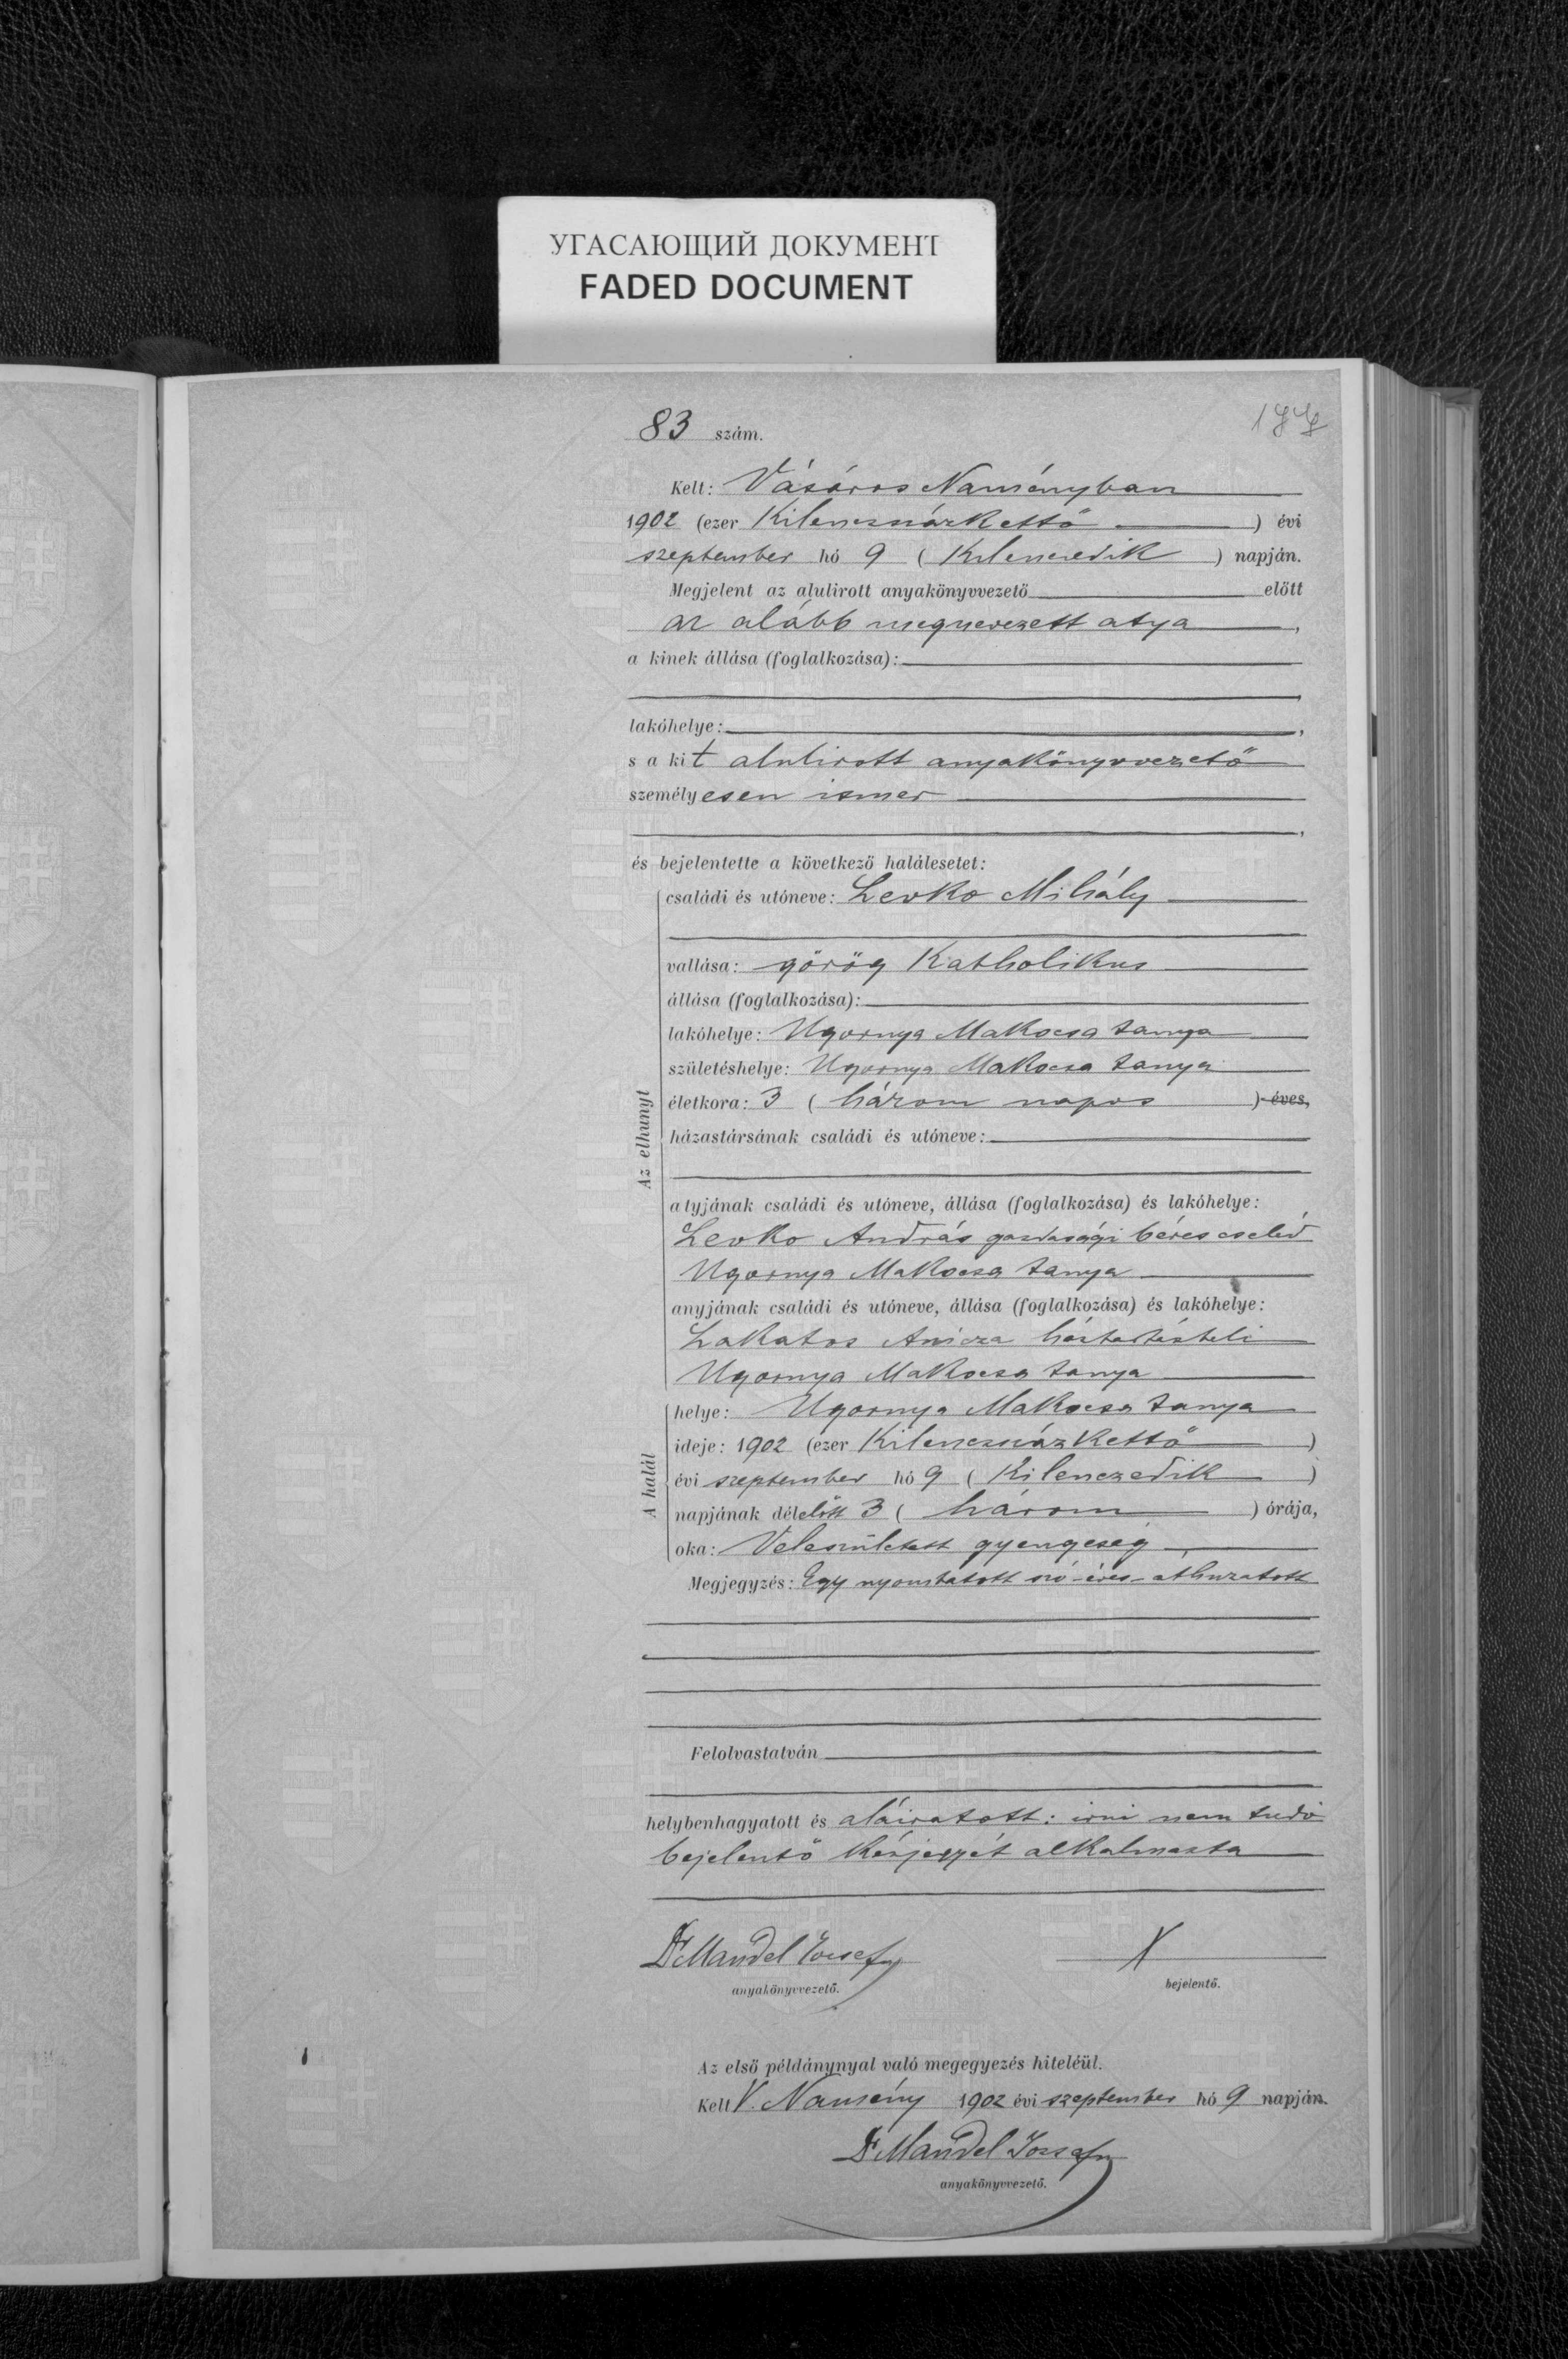 УГАСАЮЩИЙ ДОКУМЕНТ
FADED DOCUMENT
83 szám.
Kelt: Vásáros Naményban
1902 (ezer Kilenczszázkettő) évi
szeptember hó 9 (Kilenczedik) napján.
Megjelent az alulirott anyakönyvvezető előtt
az alább megnevezett atya,
a kinek állása (foglalkozása):
lakóhelye:,
s a kit alulirott anyakönyvvezető
személyesen ismer
,
és bejelentette a következő halálesetet:
Az elhunyt
családi és utóneve: Levko Mihály
vallása: görög Katholikus
állása (foglalkozása):
lakóhelye: Ugornya Makocsa tanya
születéshelye: Ugornya Makocsa tanya
életkora: 3 (három napos) éves,
házastársának családi és utóneve:
atyjának családi és utóneve, állása (foglalkozása) és lakóhelye:
Levko András gazdasági béres cseléd
Ugornya Makocsa tanya
anyjának családi és utóneve, állása (foglalkozása) és lakóhelye:
Lakatos háztartásbeli
Ugornya Makocsa tanya
A halál
helye: Ugornya Makocsa tanya
ideje: 1902 (ezer Kilenczszázkettő)
évi szeptember hó 9 (Kilenczedik)
napjának délelőtt 3 (három) órája,
oka: Veleszületett gyengeség
Megjegyzés: Egy nyomtatott szó - éves - áthuzatott
Felolvastatván
helybenhagyatott és aláiratott: irni nem tudó
bejelentő kézjegyét alkalmazta
Dr Mandel József X
anyakönyvvezető. bejelentő.
Az első példánynyal való megegyezés hiteléül.
Kelt V. Namény 1902 évi szeptember hó 9 napján.
Dr Mandel József
anyakönyvvezető.